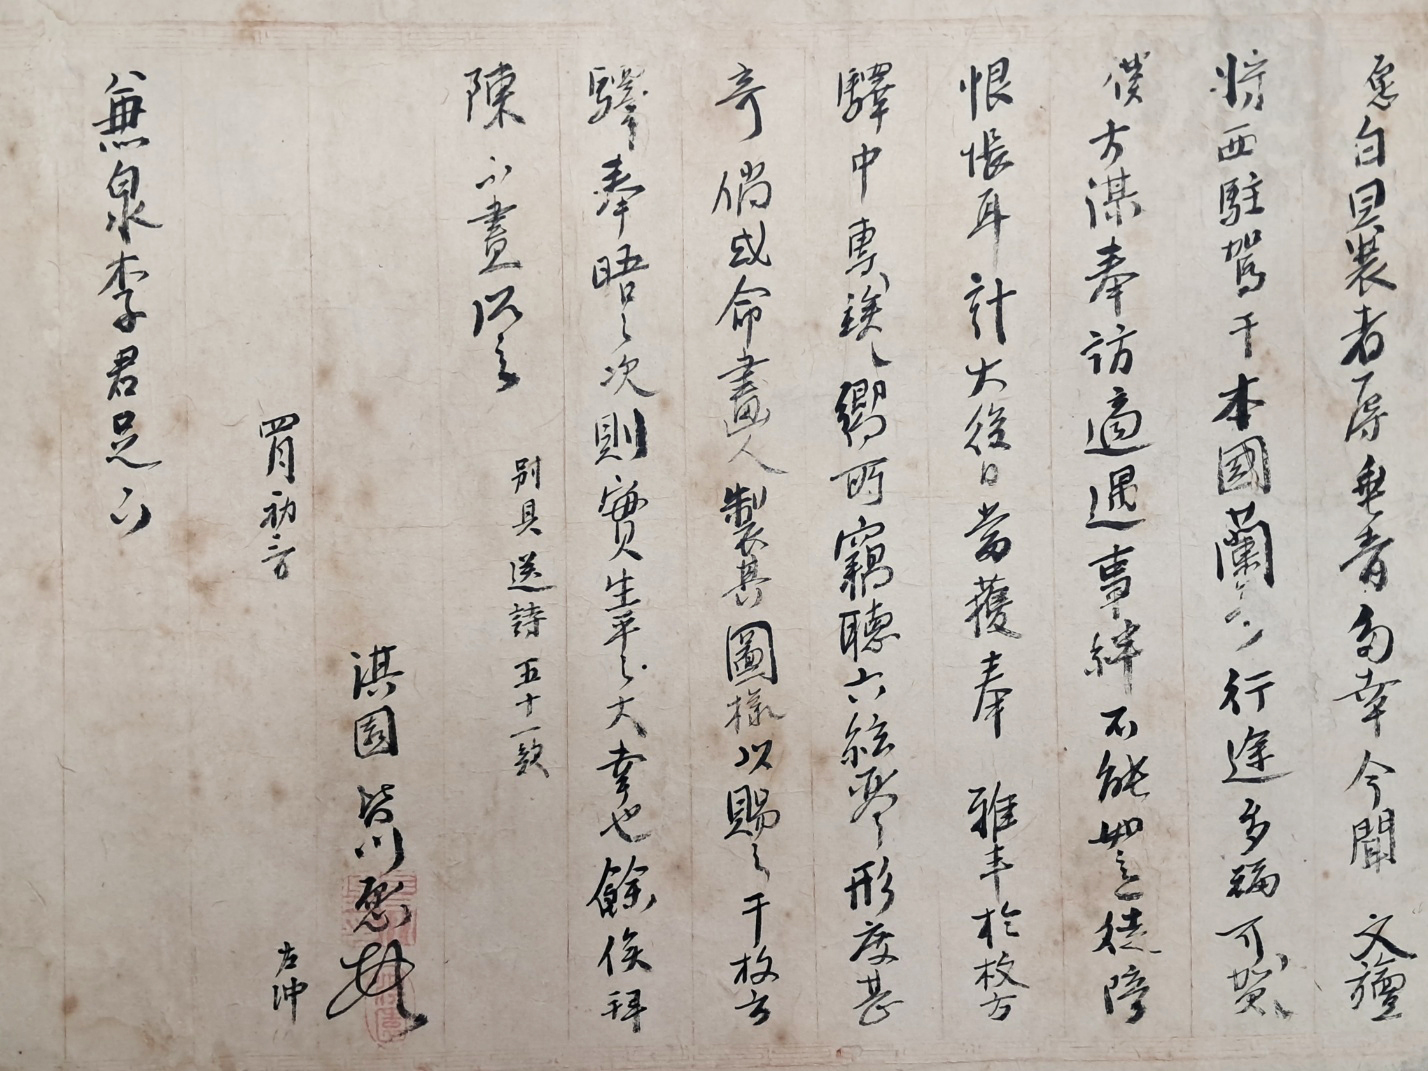 愿白曩者辱垂青多幸今聞 文旌
將西駐駕于本國蘭 行途多福可賀
僕方謀奉訪適遇事絆不能如意徒增
恨悵耳計大後日當獲奉 雅丰於枚方
驛中專俟々嚮所竊聽六絃琴形度甚
奇倘或命畫人製其圖樣以賜之于枚方
驛奉晤之次則實生平之大幸也餘俟拜
陳不盡
別具送詩五十一款
四月初三
淇園 皆川愿 拜
左沖
無泉李君足下